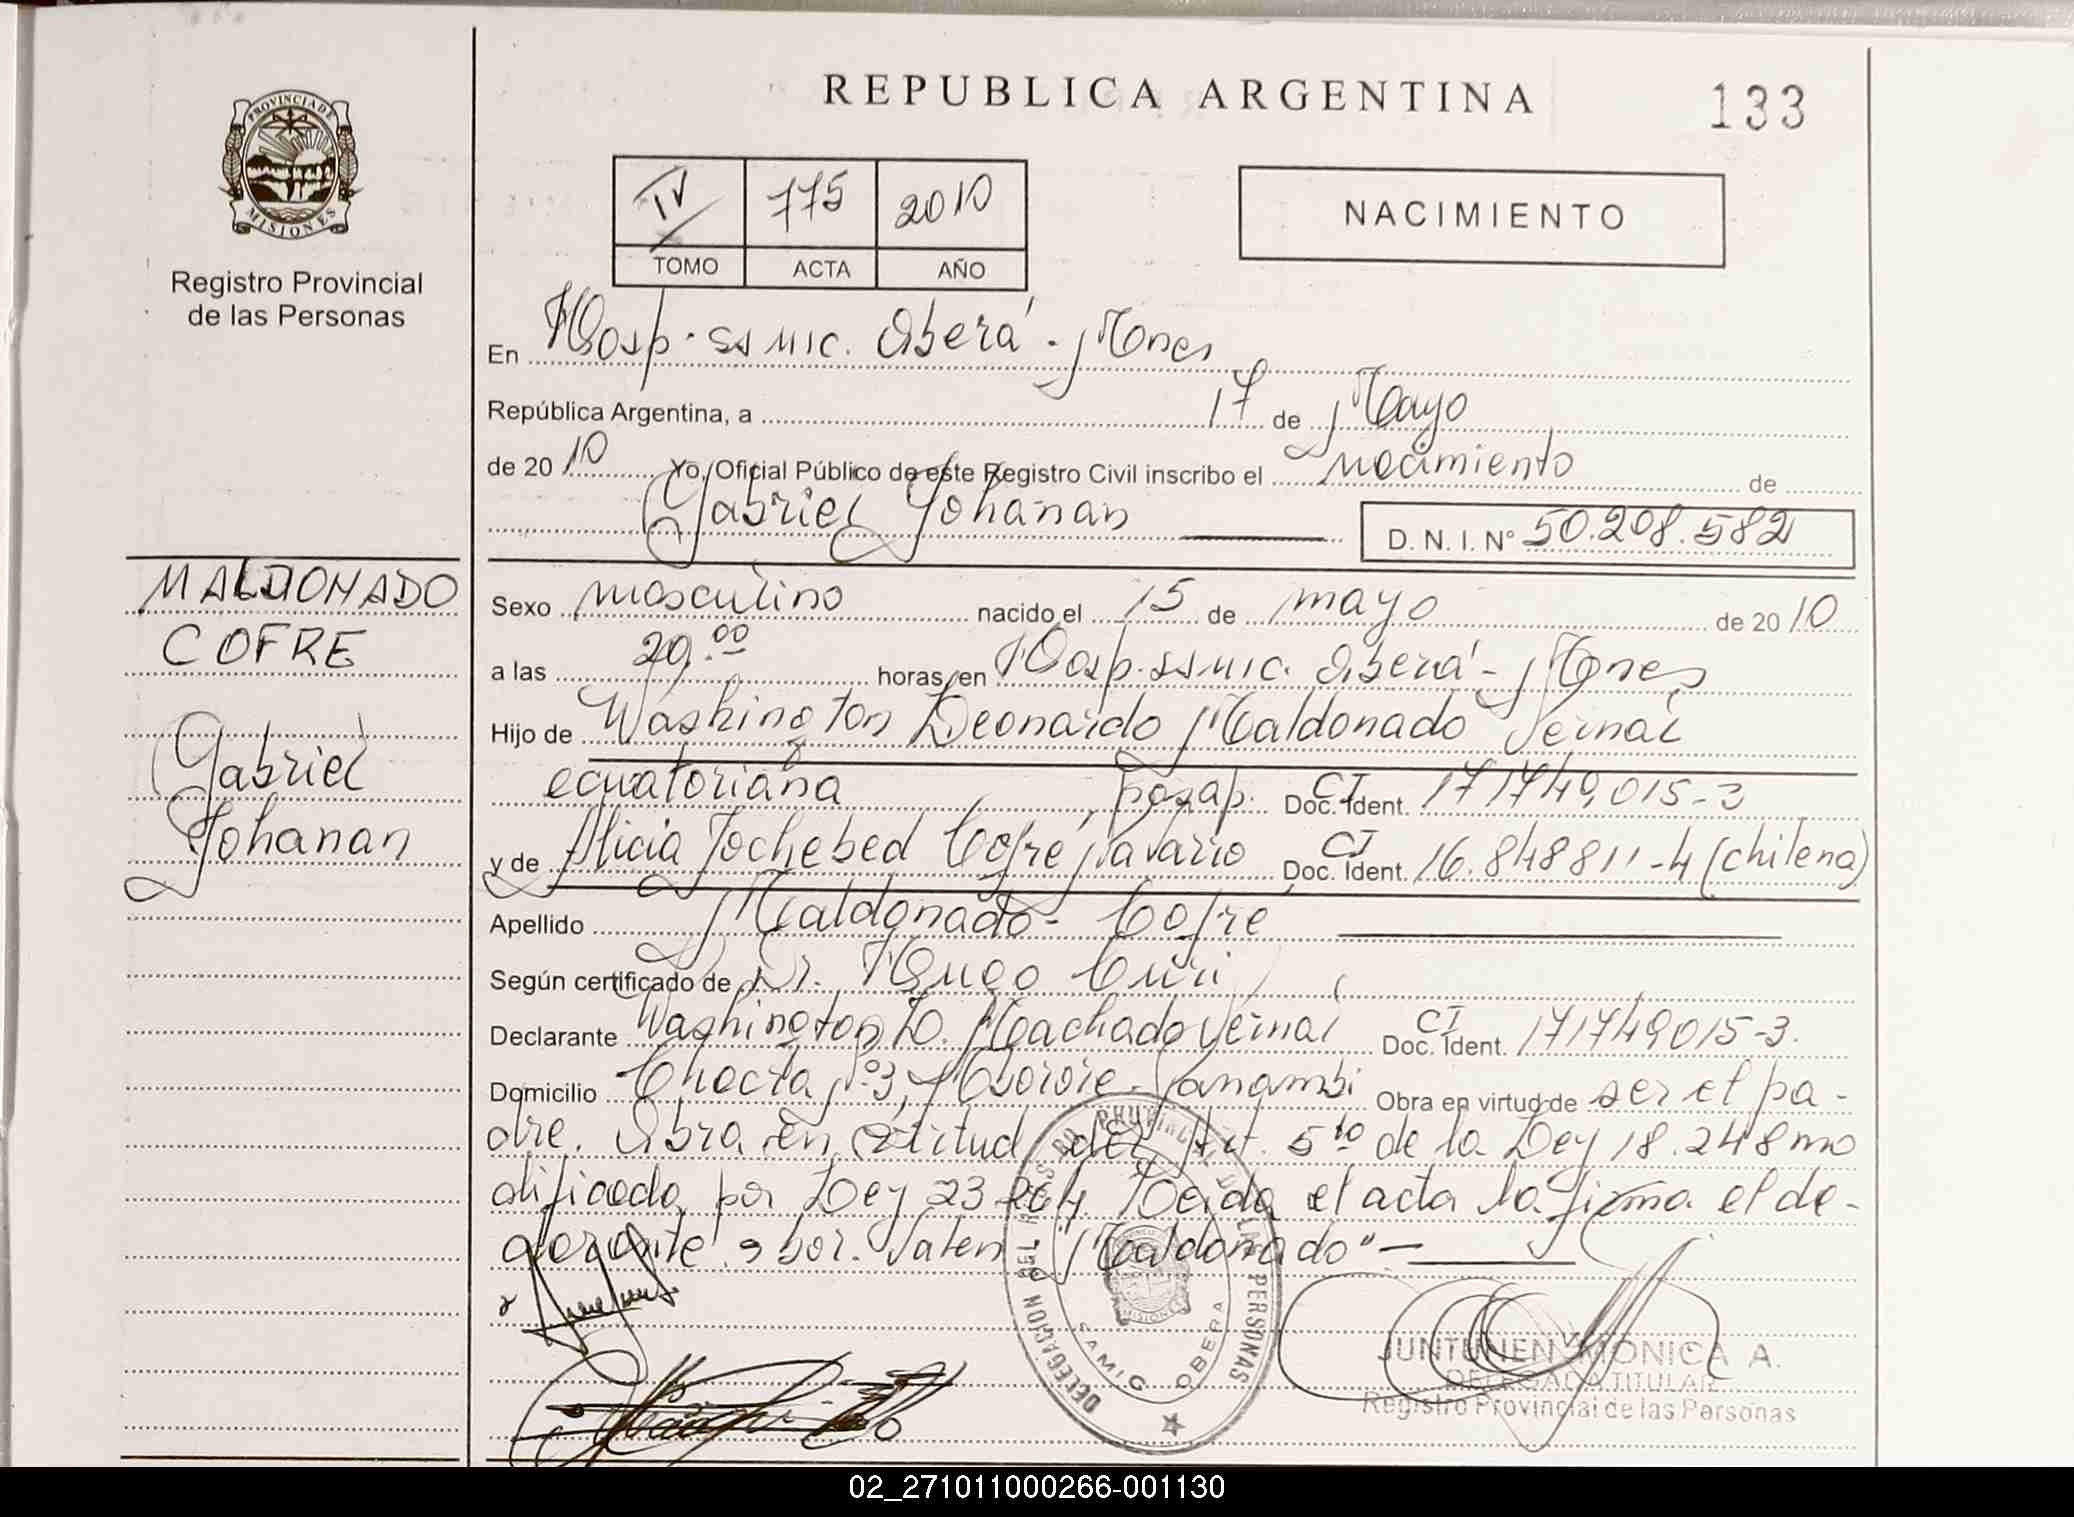 REPUBLICA ARGENTINA
133
PROVINCIA DE
MISIONES
Registro Provincial
de las Personas
IV 775 2010
TOMO ACTA AÑO
NACIMIENTO
En Hosp. SS MIC. Oberá - Mnes
República Argentina, a 17 de Mayo
de 2010 Yo, Oficial Público de este Registro Civil inscribo el nacimiento de
Gabriel Yohanan
D. N. I. Nº 50.208.582
MALDONADO
COFRE
Gabriel
Yohanan
Sexo masculino nacido el 15 de mayo de 2010
a las 20.00 horas, en Hosp. SS MIC. Oberá - Mnes
Hijo de Washington Leonardo Maldonado Vernal
ecuatoriana, pasap. CI Doc. Ident. 171749.015-3
y de Alicia Jochebed Cofré Navarro CI Doc. Ident. 16.848811-4 (chilena)
Apellido Maldonado - Cofré
Según certificado de Dr. Hugo
Declarante Washington L. Machado Vernal CI Doc. Ident. 171749015-3.
Domicilio Chacta Nº 3, Panambi Obra en virtud de ser el pa-
dre. Obra en del Art. 5to de la Ley 18.248 mo
dificada por Ley 23264. Leida el acta la firma el de-
clarante s/bor. Valen "Maldonado" -
DELEGACION DEL REGISTRO PROVINCIAL DE LAS PERSONAS
SAMIC OBERA
MISIONES
JUNTUNEN MONICA A.
DELEGADA TITULAR
Registro Provincial de las Personas
02_271011000266-001130